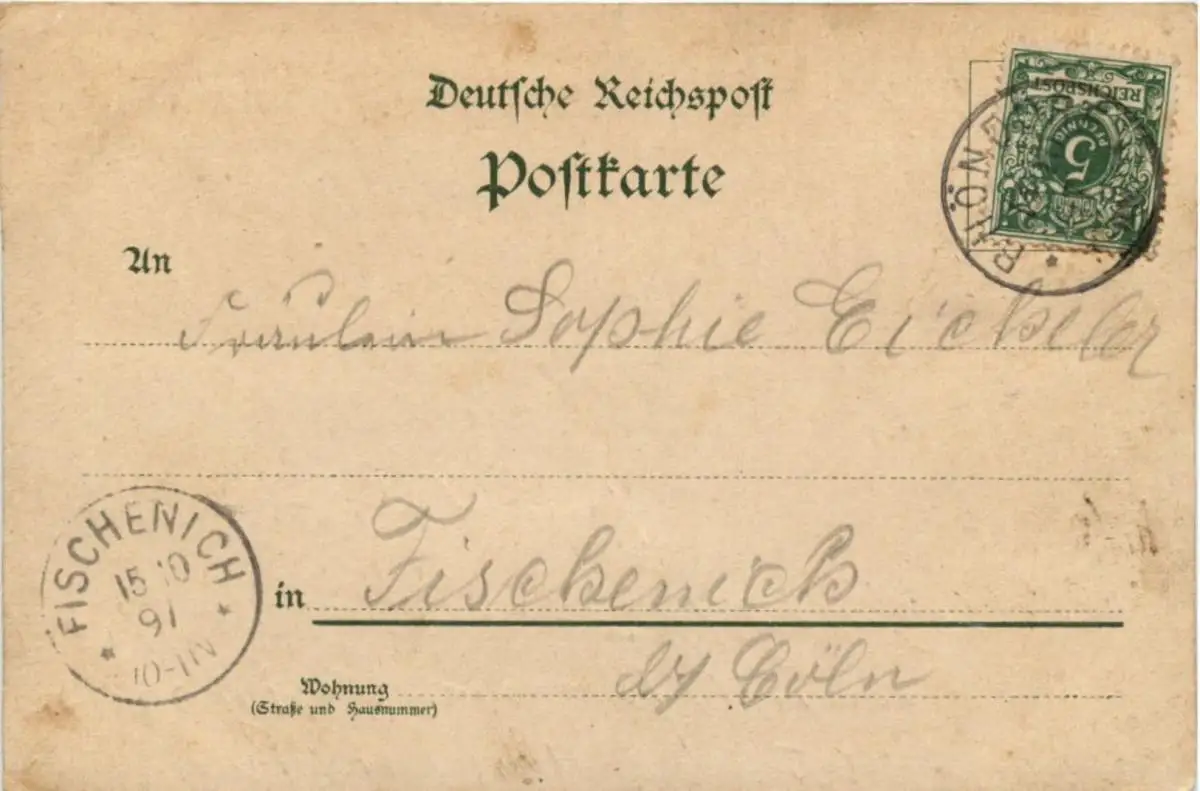 Deutsche Reichspost
Postkarte
REICHSPOST
5
PFENNIG
An
Fräulein Sophie Eickeler
FISCHENICH
15 10
97
10-11N
in Fischenich
Cöln
Wohnung
(Straße und Hausnummer)